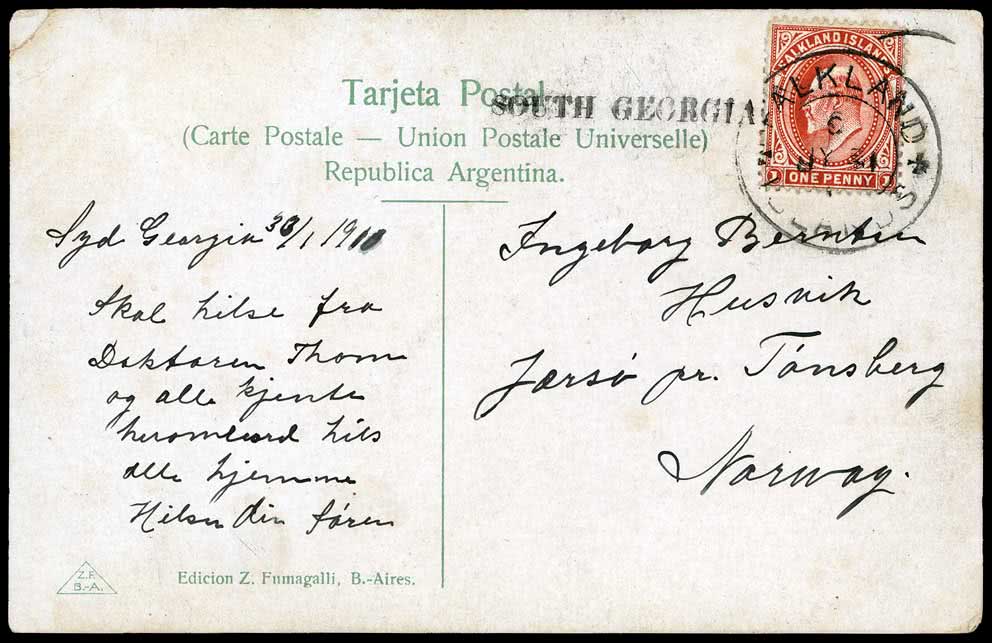 Tarjeta Postal
(Carte Postale — Union Postale Universelle)
Republica Argentina.
SOUTH GEORGIA
FALKLAND ISLANDS
ONE PENNY
1 1
FALKLAND ISLANDS
JY 31
Syd Georgia 30/1 1910
Skal hilse fra
Doktoren Thom
og alle kjente
hils
alle hjemme
Hilsen din Søren
Ingeborg Berntsen
Husvik
Jærsö pr. Tönsberg
Norway.
Z.F.
B.-A.
Edicion Z. Fumagalli, B.-Aires.